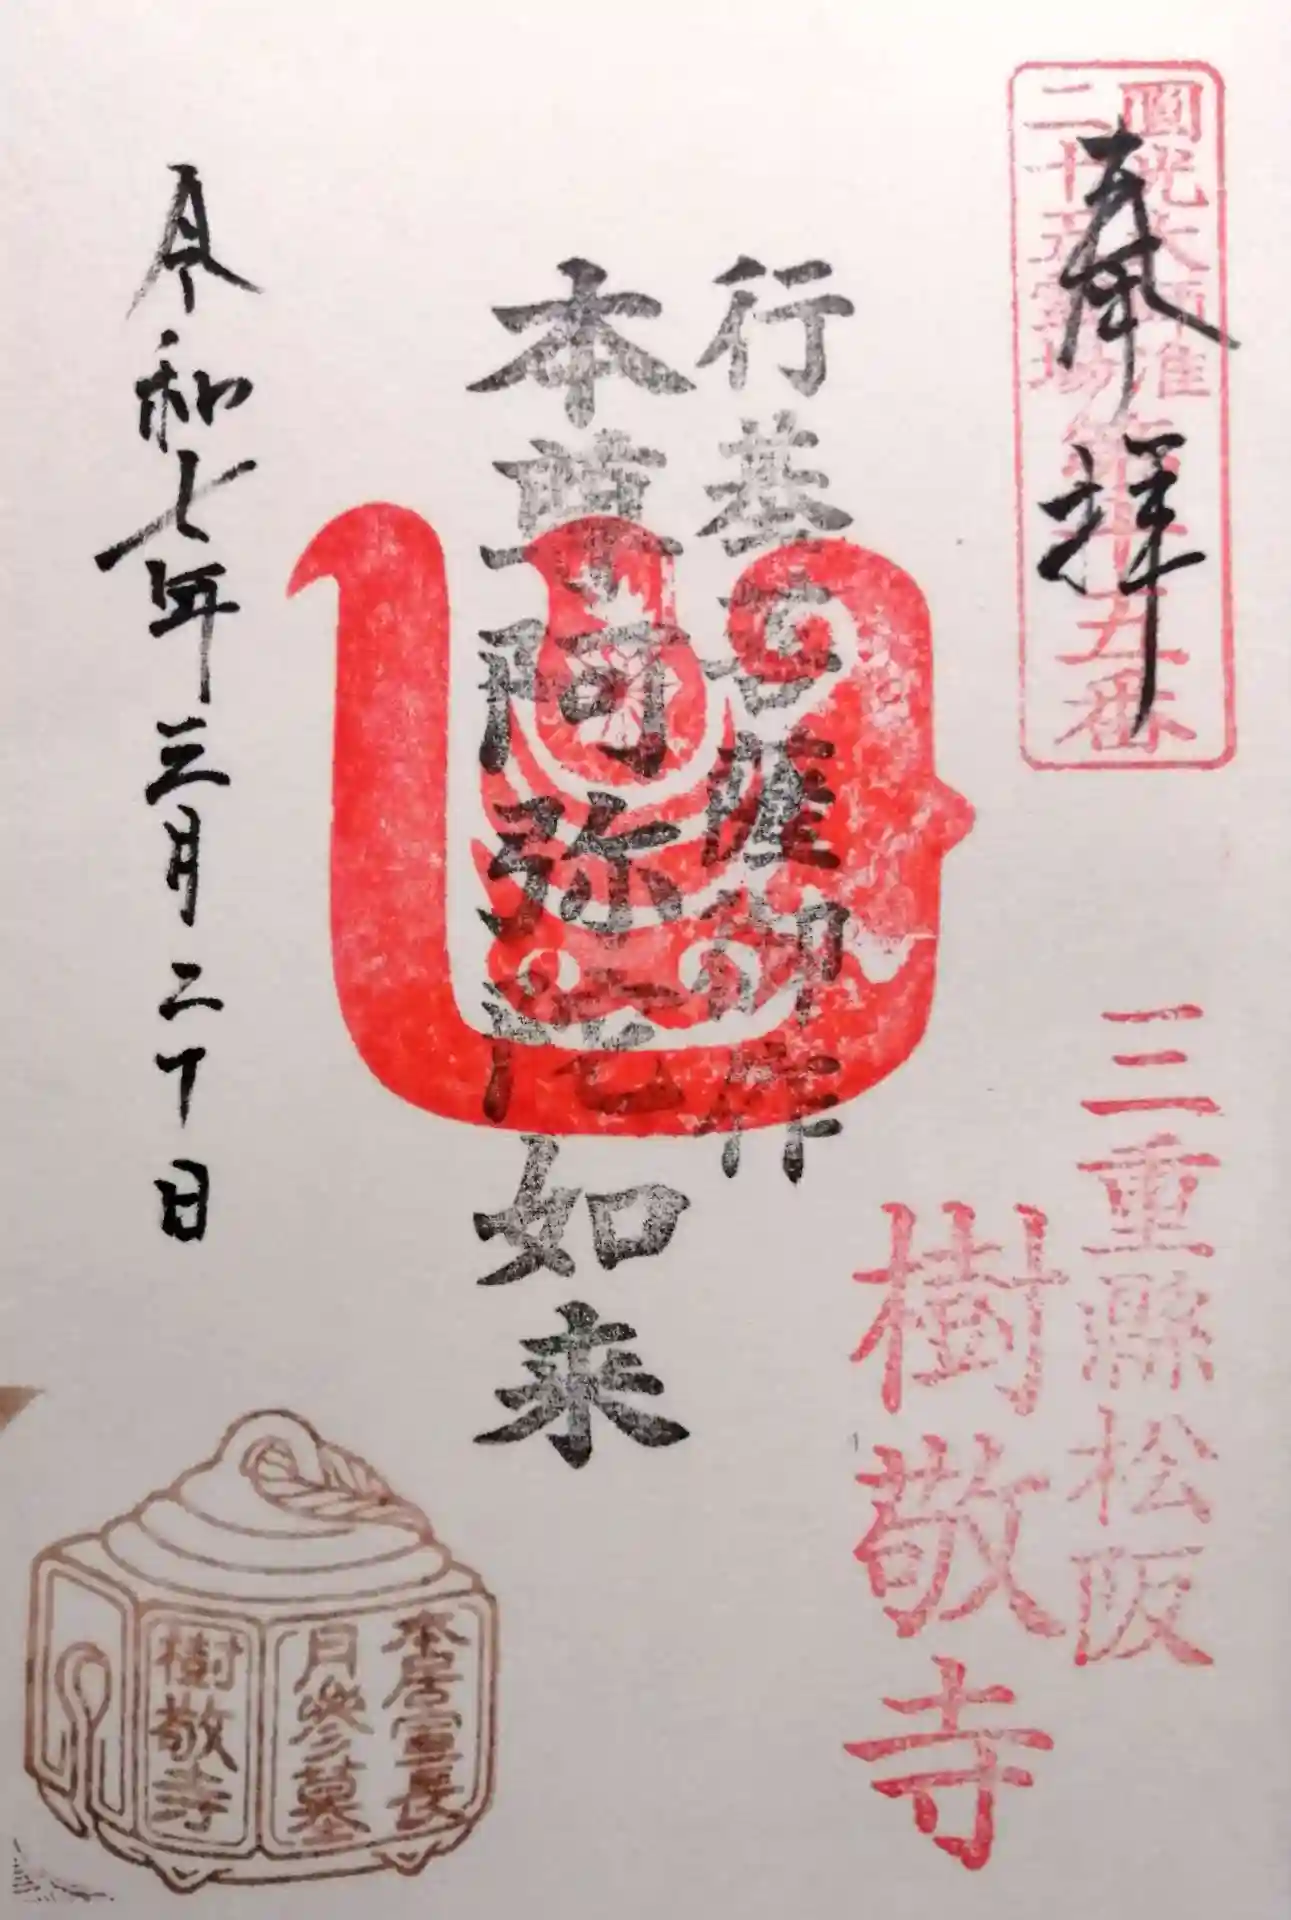 圓光大師准
二十五霊場
第十五番
奉拝
三重縣松阪
樹敬寺
行基菩薩御作
本尊阿弥陀如来
令和七年三月二十日
本居宣長
月参墓
樹敬寺